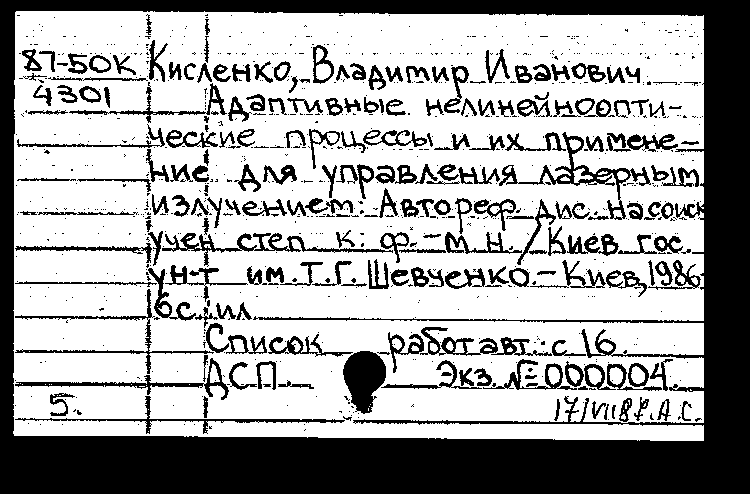 87-50К Кисленко, Владимир Иванович.
4301 Адаптивные нелинейноопти-
ческие процессы и их примене-
ние для управления лазерным
излучением: Автореф. дис. на соиск
учен степ к. ф.-м. н. / Киев гос.
ун-т им. Т.Г. Шевченко. - Киев, 1986-
16 с.: ил
Список работ авт.: с 16.
ДСП. Экз. № 000004.
5. А.С.